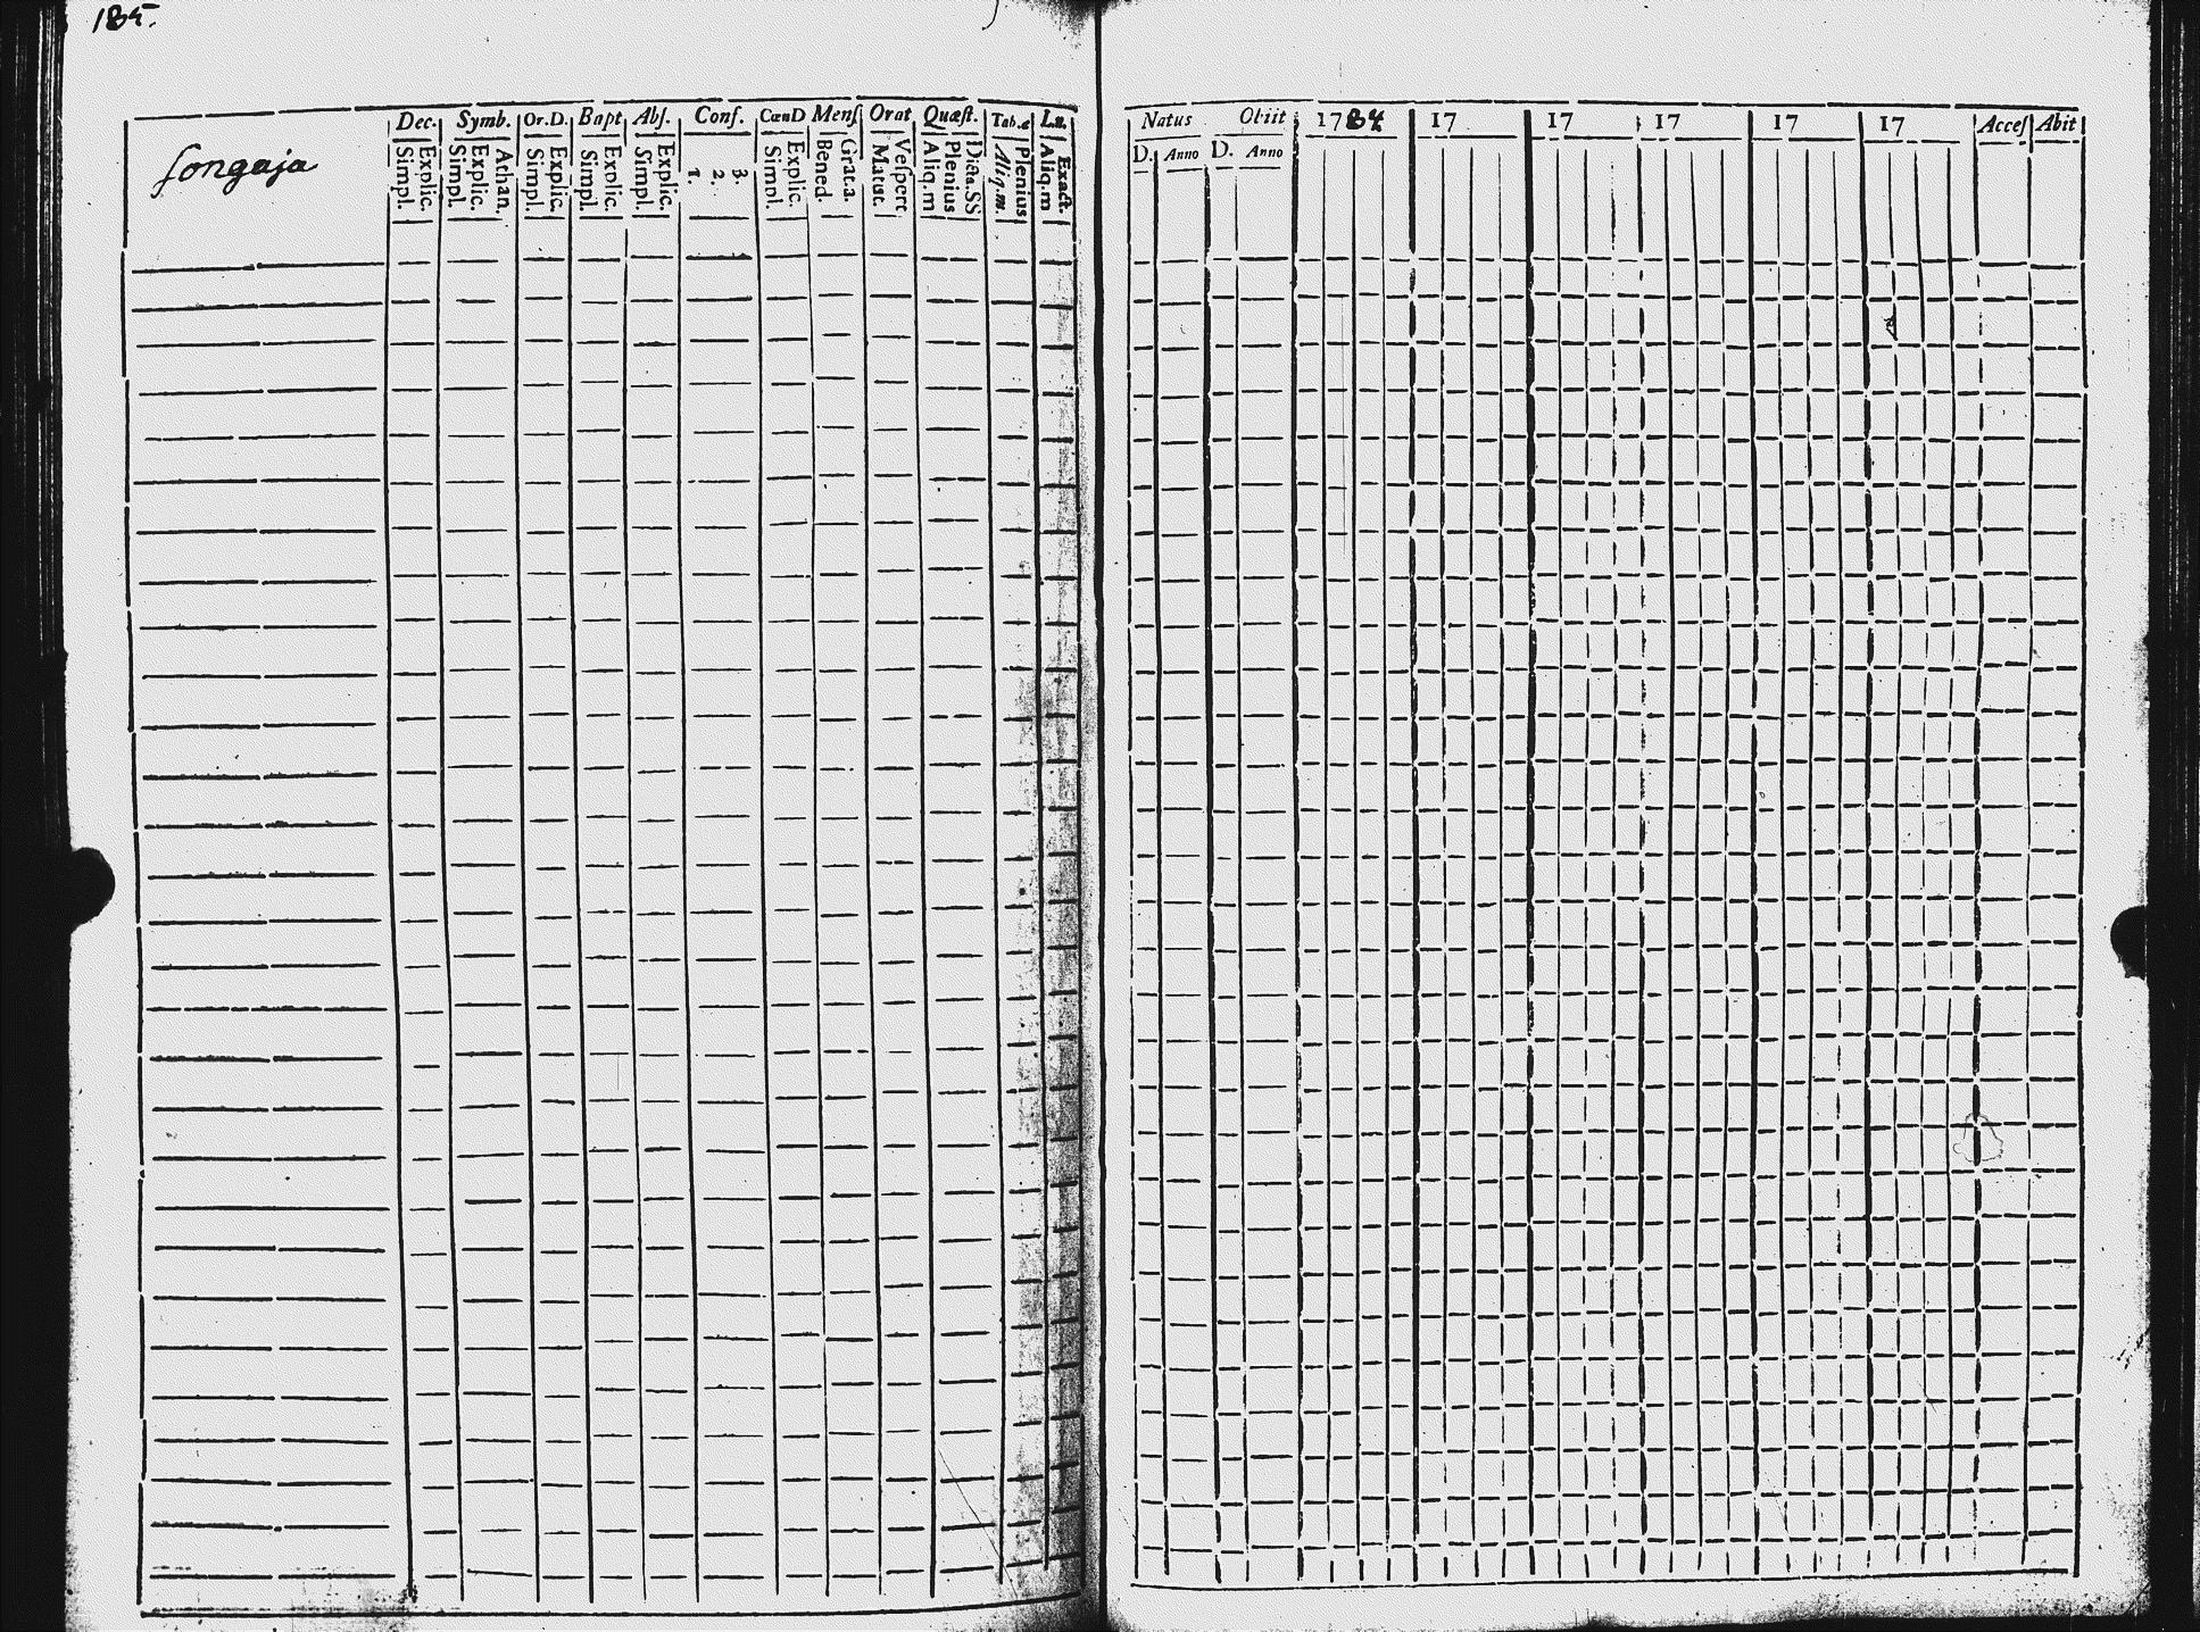 185.
Songaja
Dec. Symb. Or.D. Bapt Abſ. Conf. CœnD Menſ Orat Quæſt. Tab.æ Lu.
Simpl. Explic. Simpl. Explic. Athan. Simpl. Explic. Simpl. Explic. Simpl. Explic. 1. 2. 3. Simpl. Explic. Bened. Grat.a. Matut. Veſpert Aliq.m Plenius Dicta.SS Aliq.m. Plenius Aliq.m Exact.
Natus Obiit 1784 17 17 17 17 17 Acceſ Abit
D. Anno D. Anno